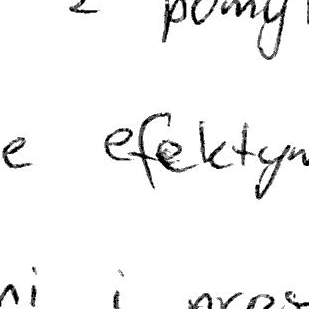 z pomy
e efektyw
ni i pres